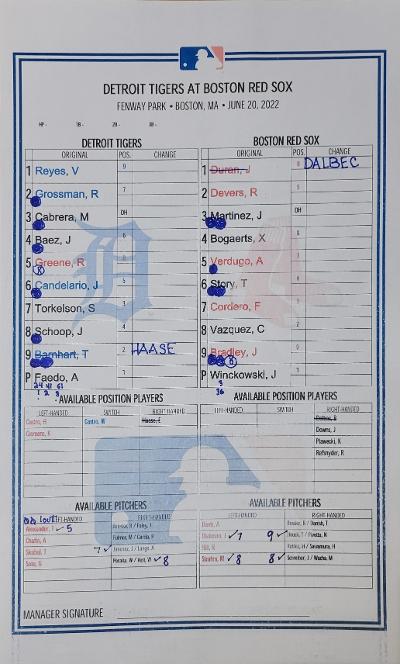 DETROIT TIGERS AT BOSTON RED SOX
FENWAY PARK • BOSTON, MA • JUNE 20, 2022
HP- 1B- 2B- 3B-
DETROIT TIGERS BOSTON RED SOX
ORIGINAL POS. CHANGE ORIGINAL POS. CHANGE
1 Reyes, V 9 1 Duran, J 8 DALBEC
2 Grossman, R 7 2 Devers, R 5
3 Cabrera, M DH 3 Martinez, J DH
4 Baez, J 6 4 Bogaerts, X 6
5 Greene, R 8 5 Verdugo, A 7
6 Candelario, J 5 6 Story, T 4
7 Torkelson, S 3 7 Cordero, F
8 Schoop, J 4 8 Vazquez, C 2
9 Barnhart, T 2 HAASE 9 Bradley, J 9
P Faedo, A P Winckowski, J
AVAILABLE POSITION PLAYERS AVAILABLE POSITION PLAYERS
LEFT-HANDED SWITCH RIGHT-HANDED LEFT-HANDED SWITCH RIGHT-HANDED
Castro, H Castro, W Haase, E Dalbec, B
Clemens, K Downs, J
Plawecki, K
Refsnyder, R
AVAILABLE PITCHERS AVAILABLE PITCHERS
LEFT-HANDED RIGHT-HANDED LEFT-HANDED RIGHT-HANDED
Alexander, T ✓5
Chafin, A
Skubal, T 7✓ ✓7 9✓
Soto, G ✓8 ✓8 8✓
MANAGER SIGNATURE